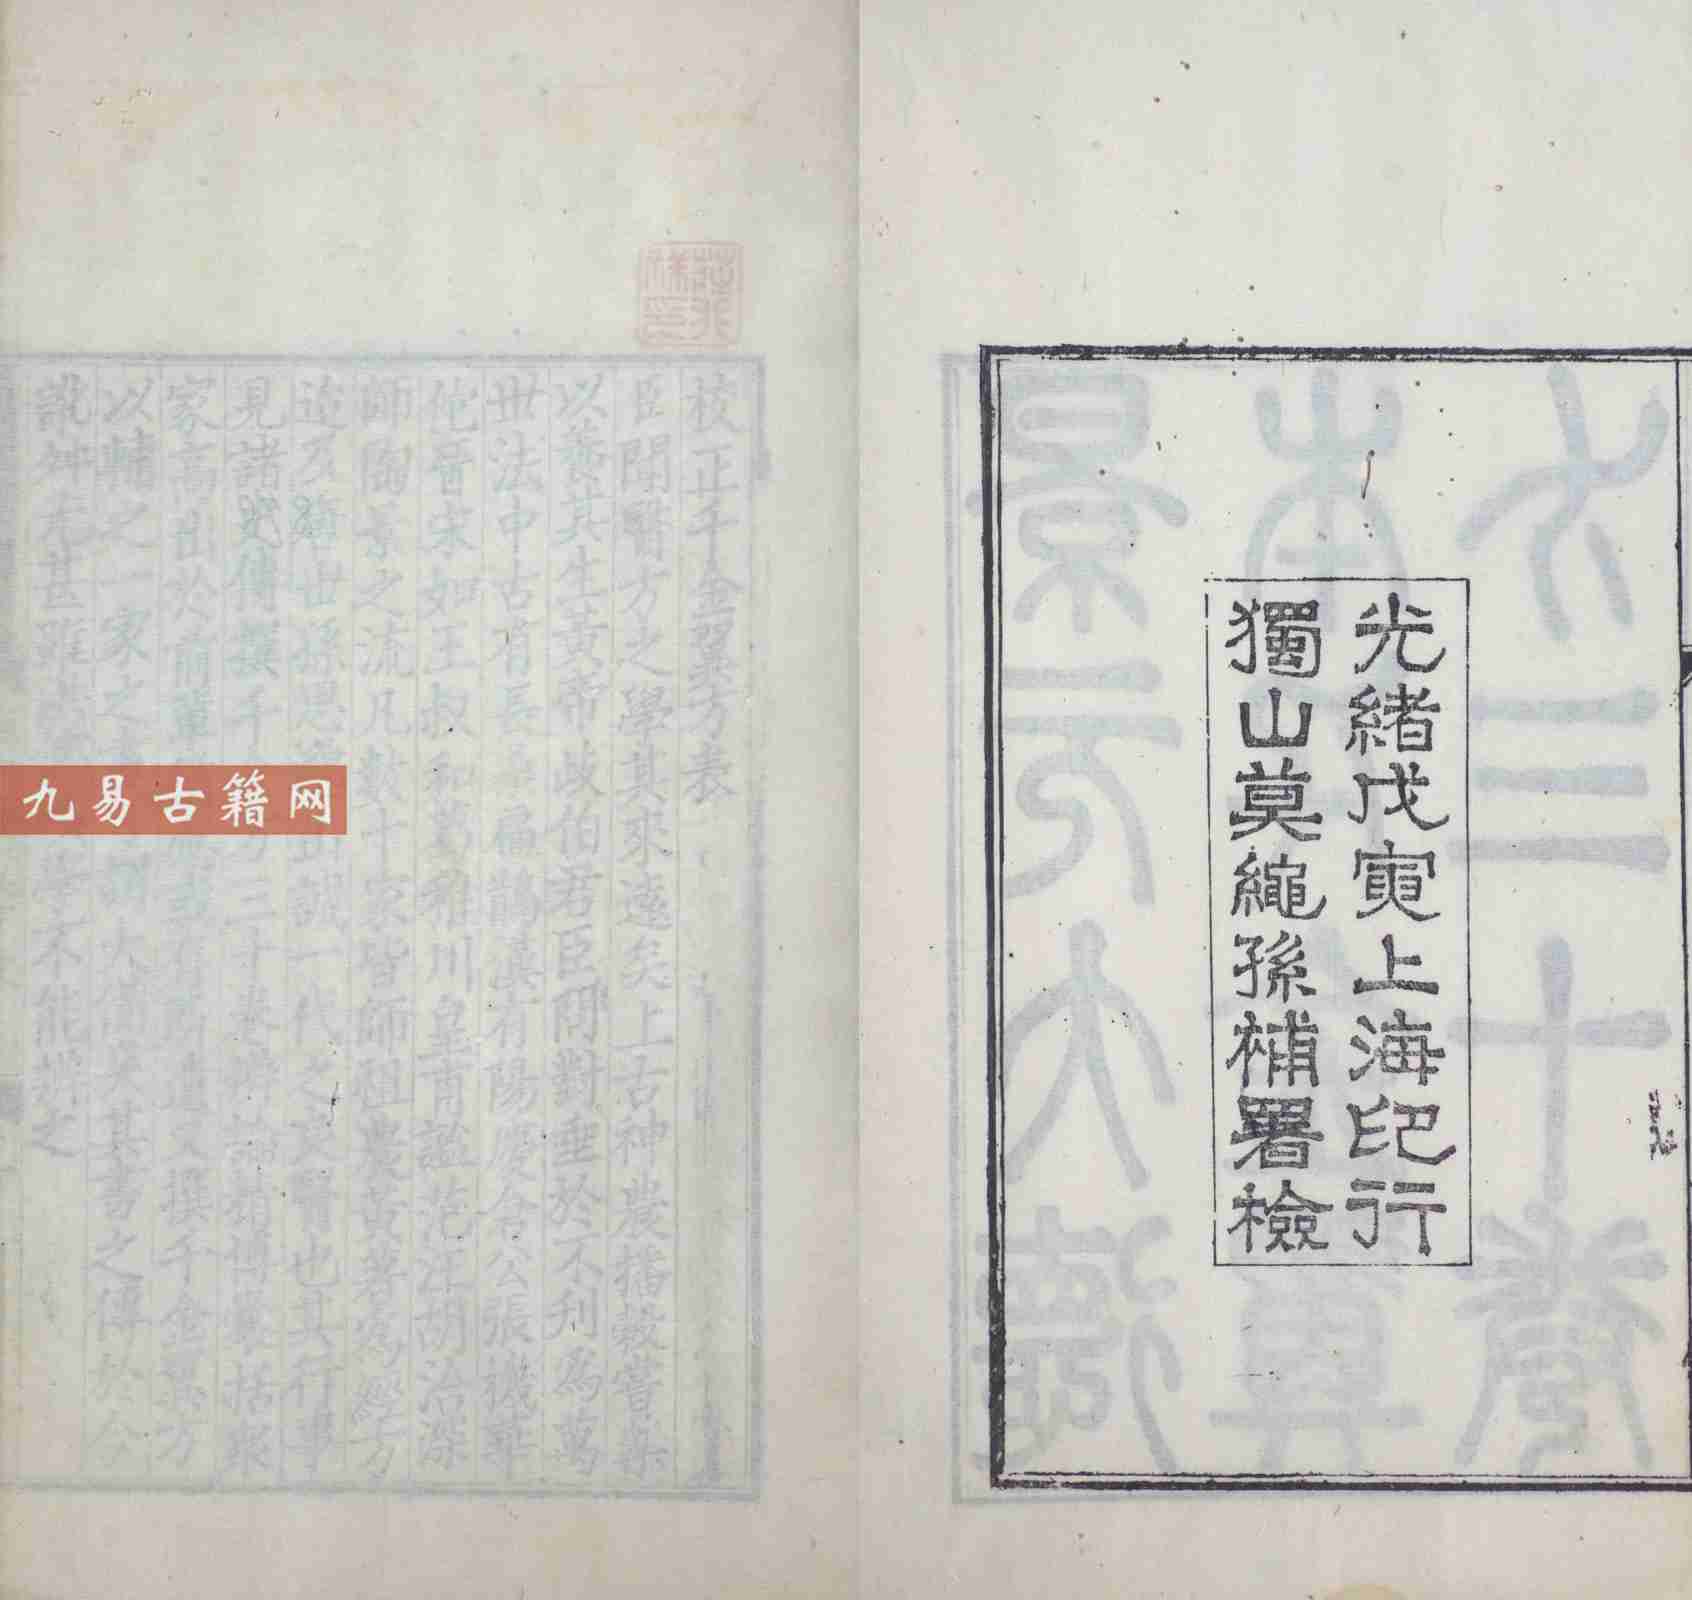 光緒戊寅上海印行
獨山莫繩孫補署檢
校正千金翼方表
臣聞醫方之學其來遠矣上古神農播穀嘗藥
以養其生黃帝歧伯君臣問對垂於不刊為萬
世法中古有長桑扁鵲漢有陽慶倉公張機華
佗晉宋如王叔和葛稚川皇甫謐范汪胡洽深
師陶景之流凡數十家皆師祖農黃著為經方
迨及隋世孫思邈出誠一代之良醫也其行事
見諸史傳撰千金方三十卷辨論精博囊括眾
家高出於前輩
又撰千金翼方
以輔之一家之書
其書之傳於今
訛舛尤甚雖
學不能辨之
九易古籍网